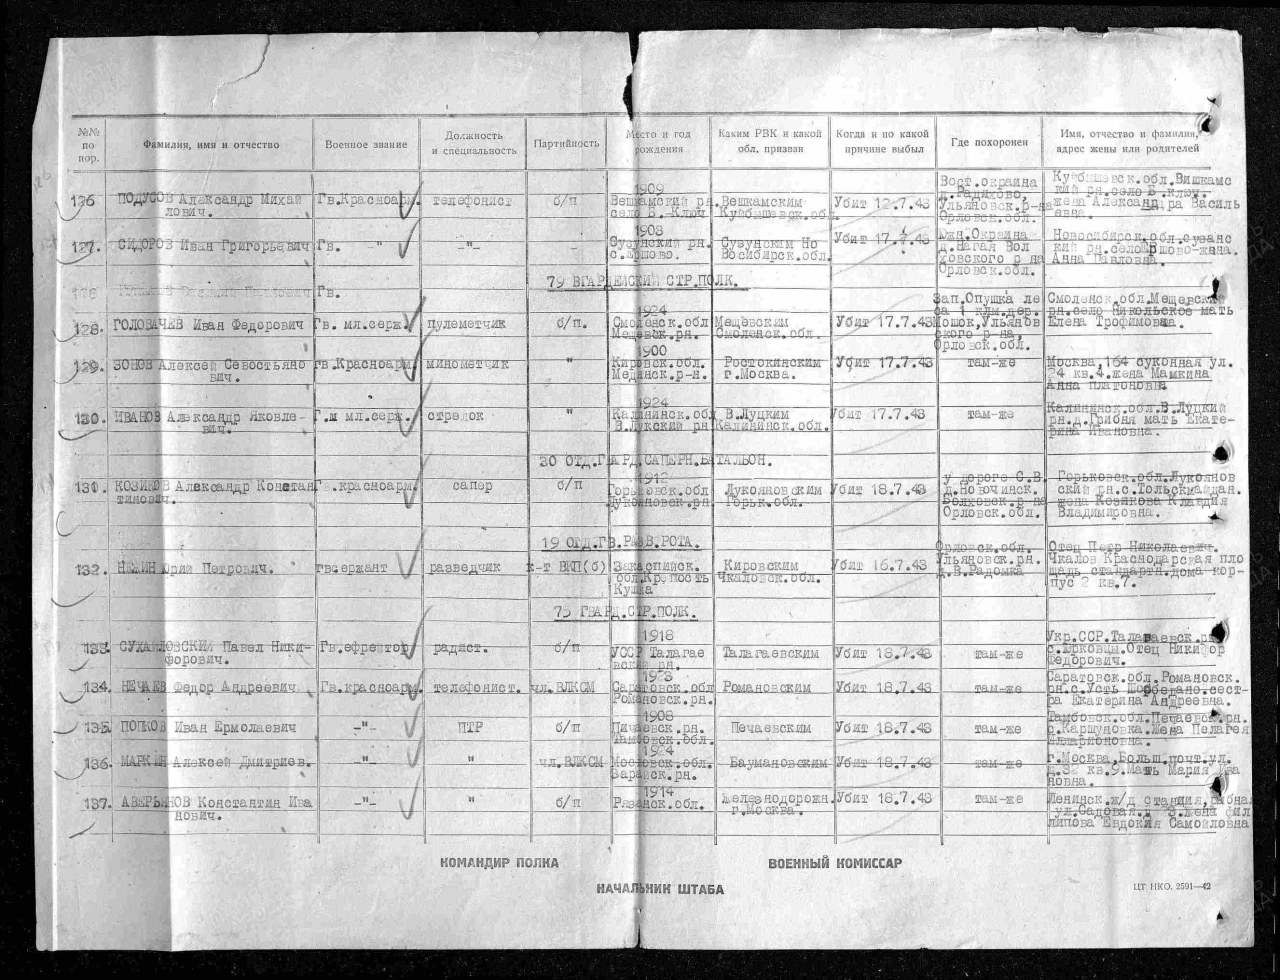 №№ по пор.
Фамилия, имя и отчество
Военное звание
Должность и специальность
Партийность
Место и год рождения
Каким РВК и какой обл. призван
Когда и по какой причине выбыл
Где похоронен
Имя, отчество и фамилия, адрес жены или родителей
126 ПОДУСОВ Александр Михайлович. Гв.Красноарм. телефонист б/п 1909 Вешкамский рн. село Б.-Ключ Вешкамским Куйбышевск.обл. Убит 12.7.43 Вост.окраина д.Радиково, Ульяновск.р-на Орловск.обл. Куйбышевск.обл.Вишкамский рн.село Б ключ. жена Александра Васильевна.
127. СИДОРОВ Иван Григорьевич Гв. -"- -"- - 1908 Сузунский рн. с.Ершово. Сузунским Новосибирск.обл. Убит 17.7.43 Южн.Окраина д.Нагая Волховского р на Орловск.обл. Новосибирск,обл.сузанский рн.село Ершово-жена. Анна Павловна.
79 ВГАРДЕЙСКИЙ СТР.ПОЛК.
Гв.
128. ГОЛОВАЧЕВ Иван Федорович Гв. мл.серж. пулеметчик б/п. 1924 Смоленск.обл Мещевск.рн. Мещевским Смоленск.обл. Убит 17.7.43 Зап.Опушка леса 1 клм.дер. Мошок,Ульяновского р-на, Орловск.обл. Смоленск.обл.Мещевский рн.село Никольское мать Елена Трофимовна.
129. ЗОНОВ Алексей Севостьянович. гв.Красноарм. минометчик " 1900 Кировск.обл. Медянск.р-н. Ростокинским г.Москва. Убит 17.7.43 там-же Москва,164 суконная ул. 24 кв.4.жена Мамкина Анна платоновна
130. ИВАНОВ Александр Яковлевич. Г.м мл.серж. стрелок " 1924 Калининск.обл В.Лукский рн В.Луцким Калининск.обл. Убит 17.7.43 там-же Калининск.обл.В.Луцкий рн.д.Грибня мать Екатерина Ивановна.
30 ОТД.ГВАРД.САПЕРН.БАТАЛЬОН.
131. КОЗИКОВ Александр Константинович. Гв.красноарм. сапер б/п 1912 Горьковск.обл Лукояновск.рн. Лукояновским Горьк.обл. Убит 18.7.43 у дороге С.В. д.Новочинск. Болховск.р-на Орловск.обл. Горьковск.обл.Лукояновский рн.с.Тольский майдан. жена Козикова Клавдия Владимировна.
19 ОТД.ГВ.РАЗВ.РОТА.
132. Юрий Петрович. гвсержант разведчик к-т ВКП(б) Закаспийск. обл.Крепость Кушка Кировским Чкаловск.обл. Убит 16.7.43 Орловск.обл. Ульяновск.рн. д.В.Радомка Отец Петр Николаевич. Чкалов Краснодарская площадь стандартн.дома корпус 2 кв.7.
75 ГВАРД.СТР.ПОЛК.
133. СУХАЙЛОВСКИЙ Павел Никифорович. Гв.ефрейтор радист. б/п 1918 УССР Талагаевский рн. Талагаевским Убит 18.7.43 там-же Укр.ССР.Талагаевск.рн. с.Юрковцы.Отец Никифор Федорович.
134. НЕЧАЕВ Федор Андреевич Гв.красноарм. телефонист. чл.ВЛКСМ 1923 Саратовск.обл Романовск.рн. Романовским Убит 18.7.43 там-же Саратовск.обл.Романовск. рн.с.Усть Щорбедано.сестра Екатерина Андреевна.
135. ПОПКОВ Иван Ермолаевич -"- ПТР б/п 1908 Пичаевск.рн. Тамбовск.обл. Печаевским Убит 18.7.43 там-же Тамбовск.обл.Печаевск.рн. с.Каршуновка.Жена Пелагея Илларионовна.
136. МАРКИН Алексей Дмитриев. -"- " чл.ВЛКСМ 1924 Московск.обл. Зарайск.рн. Баумановским Убит 18.7.43 там-же г.Москва,Больш.почт.ул. кв.9.Мать Мария Ивановна.
137. АВЕРЬЯНОВ Константин Иванович. -"- " б/п 1914 Рязанск.обл. Железнодорожн. г.Москва. Убит 18.7.43 там-же Ленинск.ж/д станция, ул.Садовая.д 73.жена Филлипова Евдокия Самойловна
КОМАНДИР ПОЛКА
ВОЕННЫЙ КОМИССАР
НАЧАЛЬНИК ШТАБА
ЦТ НКО. 2591—42